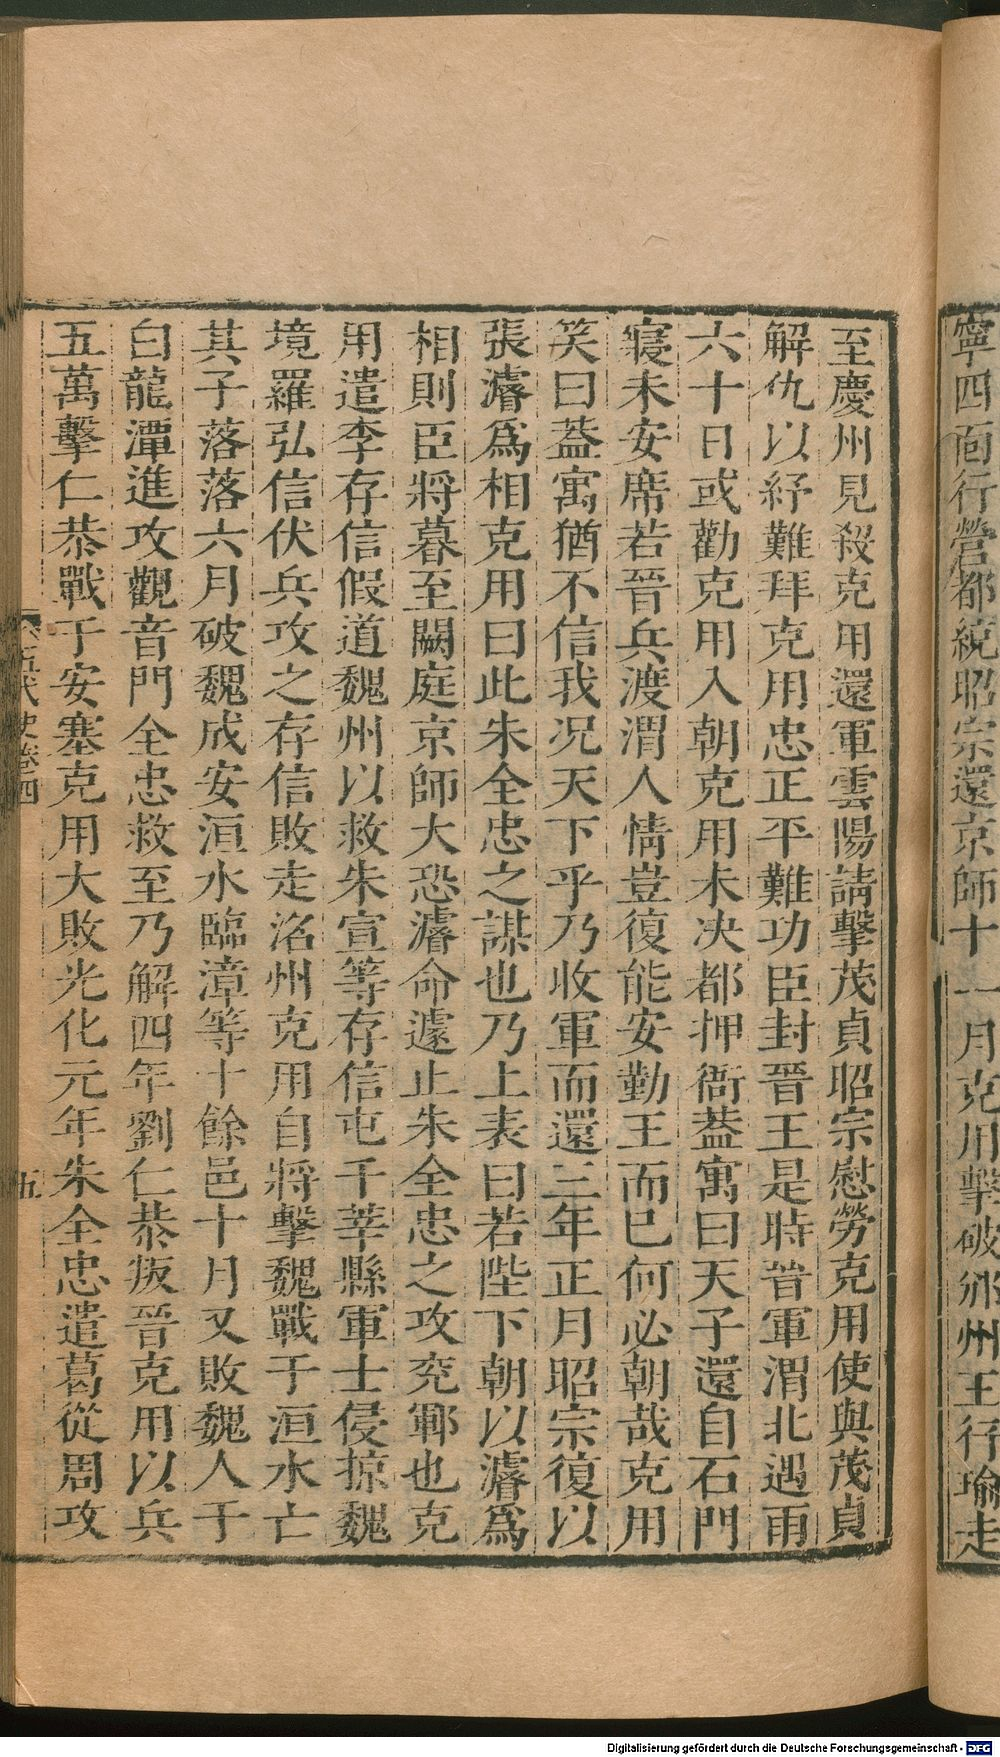 寧四面行營都統昭宗還京師十一月克用擊破邠州王行瑜走
至慶州見殺克用還軍雲陽請擊茂貞昭宗慰勞克用使與茂貞
解仇以紓難拜克用忠正平難功臣封晉王是時晉軍渭北遇雨
六十日或勸克用入朝克用未决都押衙葢寓曰天子還自石門
寢未安席若晉兵渡渭人情豈復能安勤王而已何必朝哉克用
笑曰葢寓猶不信我况天下乎乃收軍而還三年正月昭宗復以
張濬爲相克用曰此朱全忠之謀也乃上表曰若陛下朝以濬爲
相則臣將暮至闕庭京師大恐濬命遽止朱全忠之攻兖鄆也克
用遣李存信假道魏州以救朱宣等存信屯于莘縣軍士侵掠魏
境羅弘信伏兵攻之存信敗走洺州克用自將擊魏戰于洹水亡
其子落落六月破魏成安洹水臨漳等十餘邑十月又敗魏人于
白龍潭進攻觀音門全忠救至乃解四年劉仁恭叛晉克用以兵
五萬擊仁恭戰于安塞克用大敗光化元年朱全忠遣葛從周攻
五代史卷四
五
Digitalisierung gefördert durch die Deutsche Forschungsgemeinschaft - DFG